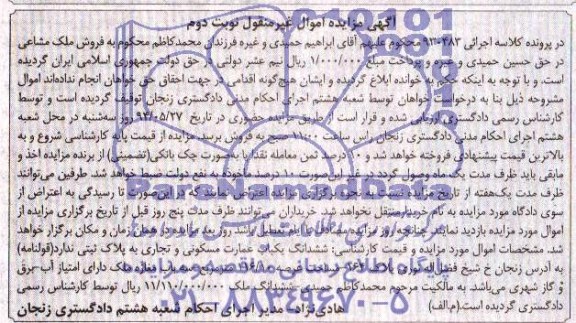 آگهی مزایده اموال غیرمنقول نوبت دوم
در پرونده کلاسه اجرائی ۹۳۰۲۸۳ محکوم علیهم آقای ابراهیم حمیدی و غیره فرزندان محمدکاظم محکوم به فروش ملک مشاعی
در حق حسین حمیدی و غیره و پرداخت مبلغ ۱/۰۰۰/۰۰۰ ریال نیم عشر دولتی در حق دولت جمهوری اسلامی ایران گردیده
است. و با توجه به اینکه حکم به خوانده ابلاغ گردیده و ایشان هیچ‌گونه اقدامی در جهت احقاق حق خواهان انجام نداده‌اند اموال
مشروحه ذیل بنا به درخواست خواهان توسط شعبه هشتم اجرای احکام مدنی دادگستری زنجان توقیف گردیده است و توسط
کارشناس رسمی دادگستری ارزیابی شده و قرار است از طریق مزایده حضوری در تاریخ ۹۳/۰۵/۲۷ روز سه‌شنبه در محل شعبه
هشتم اجرای احکام مدنی دادگستری زنجان راس ساعت ۱۱:۰۰ صبح به فروش برسد. مزایده از قیمت پایه کارشناسی شروع و به
بالاترین قیمت پیشنهادی فروخته خواهد شد و ۱۰ درصد ثمن معامله نقدا یا به‌صورت چک بانکی(تضمینی) از برنده مزایده اخذ و
مابقی باید ظرف مدت یک ماه وصول گردد در غیر این‌صورت ۱۰ درصد ماخوذه به نفع دولت ضبط خواهد شد. طرفین می‌توانند
ظرف مدت یک‌هفته از تاریخ مزایده نسبت به نحوه برگزاری مزایده اعتراض نمایند که در این‌صورت تا رسیدگی به اعتراض از
سوی دادگاه مورد مزایده به نام خریدار منتقل نخواهد شد. خریداران می‌توانند ظرف مدت پنج روز قبل از تاریخ برگزاری مزایده از
اموال مورد مزایده بازدید نمایند. چنانچه روز مزایده مصادف با تعطیل باشد روز بعد مزایده در همان زمان و مکان برگزار خواهد
شد. مشخصات اموال مورد مزایده و قیمت کارشناسی: ششدانگ یکباب عمارت مسکونی و تجاری به پلاک ثبتی ندارد(قولنامه)
به آدرس زنجان خ شیخ فضل‌اله نوری پلاک مساحت عرصه مترمربع باب مغازه ملک دارای امتیاز آب-برق
و گاز شهری می‌باشد. به مالکیت مرحوم محمدکاظم حمیدی ششدانگ ملک ۱۱/۱۱۰/۰۰۰/۰۰۰ ریال توسط کارشناس رسمی
دادگستری گردیده است.(م.الف) هادی‌نژاد- مدیر اجرای احکام شعبه هشتم دادگستری زنجان
ParsNamadData
پایگاه اطلاع رسانی مناقصه و مزایده
۰۲۱-۸۸۳۴۹۶۷۰-۵